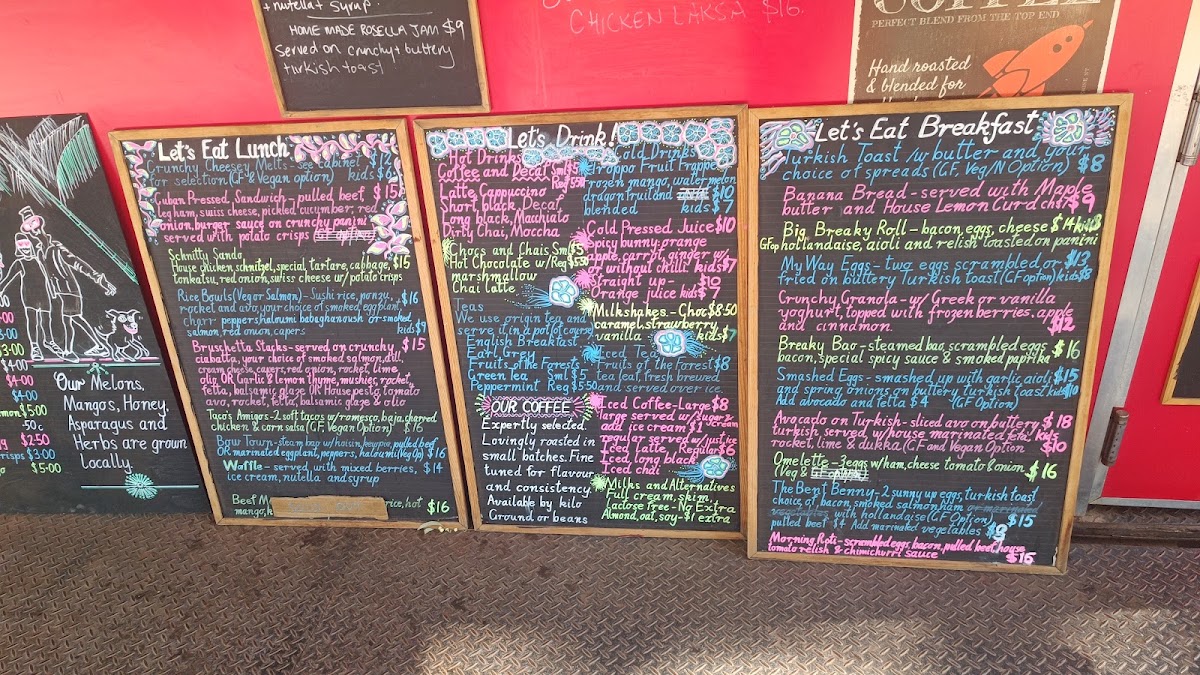 + nutella + syrup.
HOME MADE ROSELLA JAM $9
Served on crunchy + buttery
turkish toast
CHICKEN LAKSA $16
COFFEE
PERFECT BLEND FROM THE TOP END
Hand roasted
& blended for
$4.00
$4.00
$4.00
$5.00
.50c
$2.50
$3.00
$5.00
Our Melons,
Mangos, Honey,
Asparagus and
Herbs are grown
Locally.
Let's Eat Lunch
Crunchy Cheesey Melts - see cabinet $12
for selection (GF & Vegan option) kids $6
Cuban Pressed Sandwich - pulled beef, $15
leg ham, swiss cheese, pickled cucumber, red
onion, burger sauce on crunchy panini
served with potato crisps
Schnitty Sando
House chicken schnitzel, special tartare, cabbage, $15
tonkatsu, red onion, swiss cheese w/ potato crisps
Rice Bowls (Veg or Salmon) - Sushi rice, ponzu, $16
rocket and avo, your choice of smoked eggplant,
charr peppers, haloumi babaghanoush or smoked
salmon, red onion, capers kids $9
Bruschetta Stacks - served on crunchy $15
ciabatta, your choice of smoked salmon, dill,
cream cheese, capers, red onion, rocket, lime
olio OR Garlic & lemon thyme, mushies, rocket,
fetta, balsamic glaze OR House pesto, tomato
avo, rocket, fetta, balsamic glaze & olio
Taco's Amigos - 2 soft tacos w/ romesco, baja, charred
chicken & corn salsa (GF, Vegan Option) $16
Bow Town - steam bao w/ hoisin, kewpie, pulled beef
OR marinated eggplant, peppers, haloumi (Veg Op) $16
Waffle - served with mixed berries, $14
ice cream, nutella and syrup
Beef M rice, hot $16
mango, k
Let's Drink!
Hot Drinks
Coffee and Decaf Sml $5
Reg 5.50
Latte Cappucino
Short black, Decaf,
Long black, Macchiato
Dirty Chai, Moccha
Chocs and Chais Sml $5
Hot Chocolate w/ Reg $5.50
marshmallow
Chai latte
Teas
We use origin tea and
serve it in a pot of course
English Breakfast
Earl Grey
Fruits of the Forests
Green tea Sml $5
Peppermint Reg $5.50
OUR COFFEE
Expertly selected.
Lovingly roasted in
small batches. Fine
tuned for flavour
and consistency.
Available by kilo
Ground or beans
Cold Drinks
Troppo Fruit Frappe
frozen mango, water melon
dragonfruit and $10
blended kids $7
Cold Pressed Juice $10
Spicy bunny: orange
apple, carrot, ginger w/
or without chilli kids $7
Straight up - $10
Orange juice kids $7
Milkshakes - Choc $8.50
caramel, strawberry,
vanilla kids $7
Iced Tea
Fruits of the forest $8
tea leaf, fresh brewed
and served over ice
Iced Coffee - Large $8
large served w/ sugar &
add ice cream $1 cream
regular served w/ just ice
Iced latte, Regular $6
Iced long black,
Iced chai
Milks and Alternatives
Full cream, skim,
Lactose Free - No Extra
Almond, oat, soy - $1 extra
Let's Eat Breakfast
Turkish Toast /w butter and your
choice of spreads (GF, Veg/N Option) $8
Banana Bread - served with Maple
butter and House Lemon Curd ch $7 $9
Big Breaky Roll - bacon, eggs, cheese $14
GFop hollandaise, aioli and relish toasted on panini
My Way Eggs - two eggs scrambled or $13
fried on buttery Turkish toast (GF option) kids $8
Crunchy Granola - w/ Greek or vanilla
yoghurt, topped with frozen berries, apple
and cinnamon $12
Breaky Bao - steamed bao, scrambled eggs $16
bacon, special spicy sauce & smoked paprika
Smashed Eggs - smashed up with garlic aioli $15
and spring onions on buttery turkish toast kids $10
Add avocado and fetta $4 (GF Option)
Avocado on Turkish - sliced avo on buttery $18
turkish, served w/ house marinated feta, kids
rocket, lime & dukka (GF and Vegan Option $10
Omelette - 3 eggs w/ ham, cheese tomato & onion $16
(Veg &
The Bent Benny - 2 sunny up eggs, turkish toast
choice of, bacon, smoked salmon, ham or marinated
vegetables with hollandaise (GF Option) $15
pulled beef $4 Add marinated vegetables $3
Morning Roti - scrambled eggs, bacon, pulled beef, house
tomato relish & chimichurri sauce $16